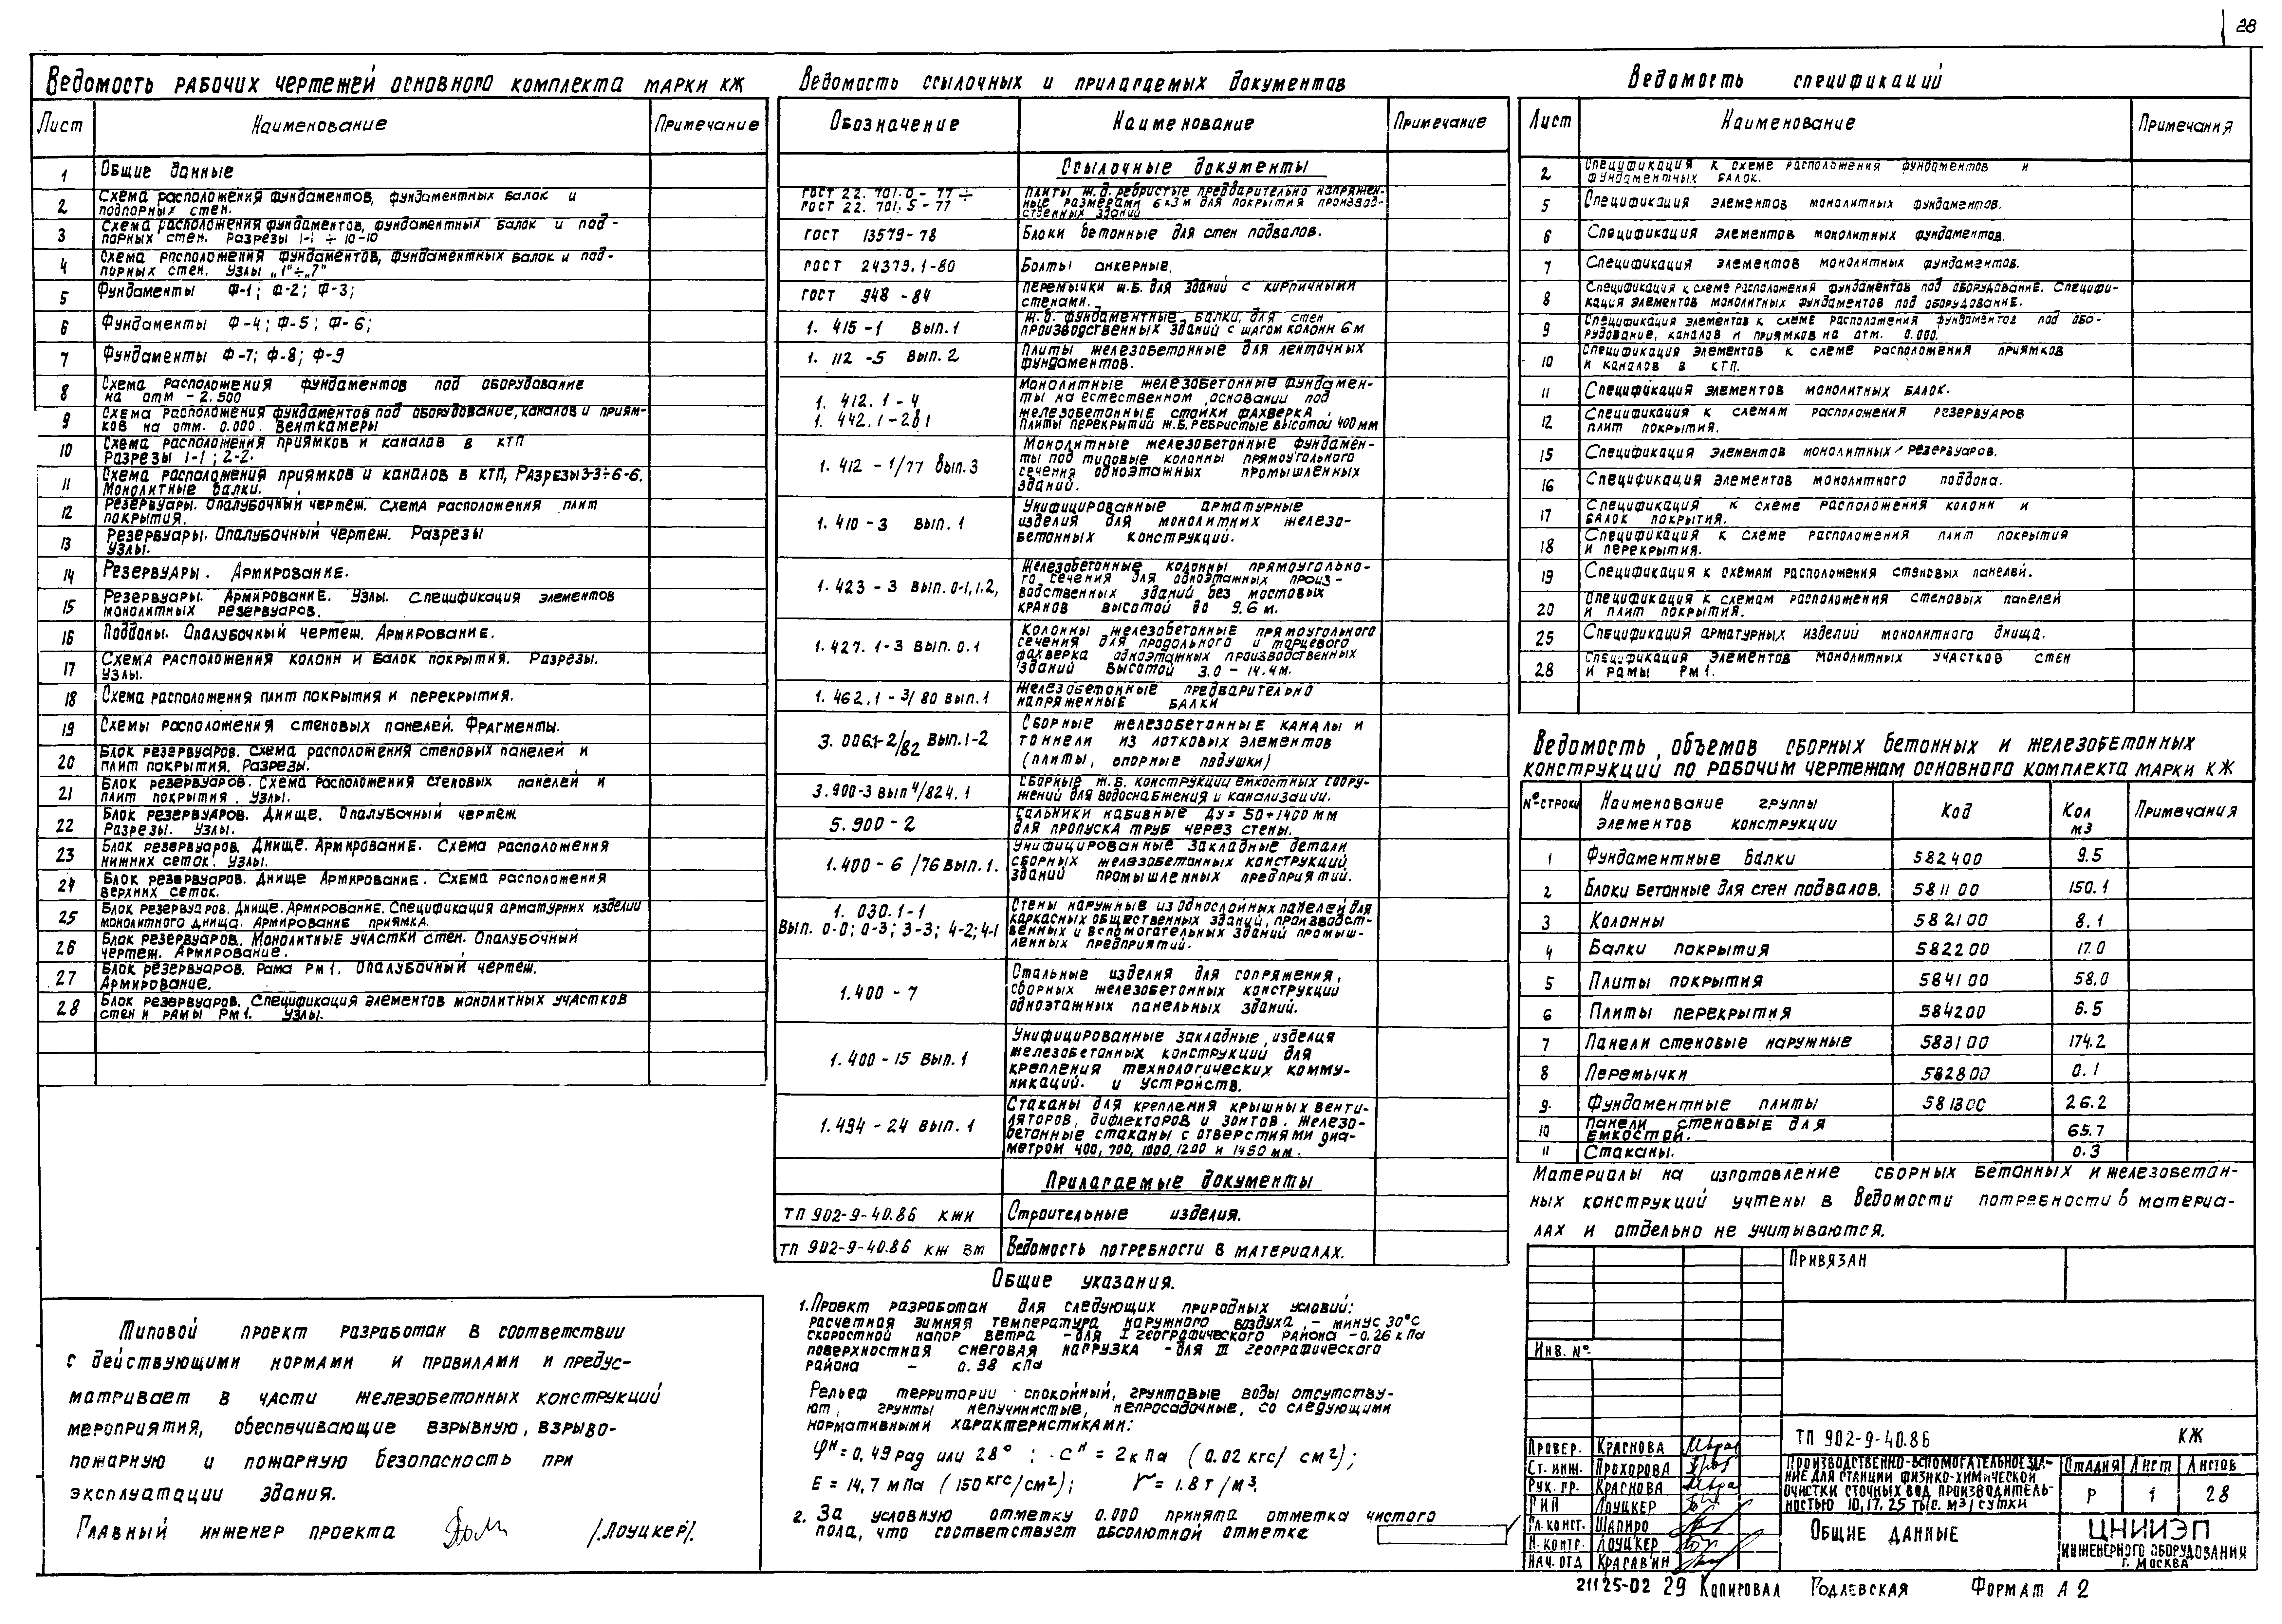 28
Ведомость рабочих чертежей основного комплекта марки КЖ
Лист Наименование Примечание
1 Общие данные
2 Схема расположения фундаментов, фундаментных балок и
подпорных стен.
3 Схема расположения фундаментов, фундаментных балок и под-
порных стен. Разрезы 1-1 ÷ 10-10
4 Схема расположения фундаментов, фундаментных балок и под-
порных стен. Узлы „1"÷„7"
5 Фундаменты Ф-1; Ф-2; Ф-3;
6 Фундаменты Ф-4; Ф-5; Ф-6;
7 Фундаменты Ф-7; Ф-8; Ф-9
8 Схема расположения фундаментов под оборудование
на отм -2.500
9 Схема расположения фундаментов под оборудование, каналов и приям-
ков на отм. 0.000. Венткамеры
10 Схема расположения приямков и каналов в КТП
Разрезы 1-1; 2-2.
11 Схема расположения приямков и каналов в КТП, Разрезы 3-3÷6-6.
Монолитные балки.
12 Резервуары. Опалубочный чертеж. Схема расположения плит
покрытия.
13 Резервуары. Опалубочный чертеж. Разрезы
Узлы.
14 Резервуары. Армирование.
15 Резервуары. Армирование. Узлы. Спецификация элементов
монолитных резервуаров.
16 Поддоны. Опалубочный чертеж. Армирование.
17 Схема расположения колонн и балок покрытия. Разрезы.
Узлы.
18 Схема расположения плит покрытия и перекрытия.
19 Схемы расположения стеновых панелей. Фрагменты.
20 Блок резервуаров. Схема расположения стеновых панелей и
плит покрытия. Разрезы.
21 Блок резервуаров. Схема расположения стеновых панелей и
плит покрытия. Узлы.
22 Блок резервуаров. Днище. Опалубочный чертеж
Разрезы. Узлы.
23 Блок резервуаров. Днище. Армирование. Схема расположения
нижних сеток. Узлы.
24 Блок резервуаров. Днище Армирование. Схема расположения
верхних сеток.
25 Блок резервуаров. Днище. Армирование. Спецификация арматурных изделий
монолитного днища. Армирование приямка.
26 Блок резервуаров. Монолитные участки стен. Опалубочный
чертеж. Армирование.
27 Блок резервуаров. Рама Рм1. Опалубочный чертеж.
Армирование.
28 Блок резервуаров. Спецификация элементов монолитных участков
стен и рамы Рм1. Узлы.
Типовой проект разработан в соответствии
с действующими нормами и правилами и предус-
матривает в части железобетонных конструкций
мероприятия, обеспечивающие взрывную, взрыво-
пожарную и пожарную безопасность при
эксплуатации здания.
Главный инженер проекта /Лоуцкер/.
Ведомость ссылочных и прилагаемых документов
Обозначение Наименование Примечание
Ссылочные документы
ГОСТ 22.701.0-77 ÷
ГОСТ 22.701.5-77
Плиты ж.б. ребристые предварительно напряжен-
ные размерами 6х3м для покрытия производ-
ственных зданий
ГОСТ 13579-78 Блоки бетонные для стен подвалов.
ГОСТ 24379.1-80 Болты анкерные.
ГОСТ 948-84 Перемычки ж.б. для зданий с кирпичными
стенами.
1.415-1 Вып.1 Ж.б. фундаментные балки, для стен
производственных зданий с шагом колонн 6м
1.112-5 Вып.2 Плиты железобетонные для ленточных
фундаментов.
1.412.1-4 Монолитные железобетонные фундамен-
ты на естественном основании под
железобетонные стойки фахверка.
1.442.1-2в1 Плиты перекрытий ж.б. ребристые высотой 400мм
1.412-1/77 Вып.3 Монолитные железобетонные фундамен-
ты под типовые колонны прямоугольного
сечения одноэтажных промышленных
зданий.
1.410-3 Вып.1 Унифицированные арматурные
изделия для монолитних железо-
бетонных конструкций.
1.423-3 Вып.0-1,1.2, Железобетонные колонны прямоугольно-
го сечения для одноэтажных произ-
водственных зданий без мостовых
кранов высотой до 9.6 м.
1.427.1-3 Вып.0.1 Колонны железобетонные прямоугольного
сечения для продольного и торцевого
фахверка одноэтажных производственных
зданий высотой 3.0 - 14.4м.
1.462.1-3/80 Вып.1 Железобетонные предварительно
напряженные балки
3.006.1-2/82 Вып.1-2 Сборные железобетонные каналы и
тоннели из лотковых элементов
(плиты, опорные подушки)
3.900-3 Вып 4/824.1 Сборные ж.б. конструкции емкостных соору-
жений для водоснабжения и канализации.
5.900-2 Сальники набивные Ду = 50÷1400 мм
для пропуска труб через стены.
1.400-6/76 Вып.1. Унифицированные закладные детали
сборных железобетонных конструкций
зданий промышленных предприятий.
1.030.1-1
Вып. 0-0; 0-3; 3-3; 4-2; 4-1
Стены наружные из однослойных панелей для
каркасных общественных зданий, производст-
венных и вспомогательных зданий промыш-
ленных предприятий.
1.400-7 Стальные изделия для сопряжения,
сборных железобетонных конструкции
одноэтажных панельных зданий.
1.400-15 Вып.1 Унифицированные закладные изделия
железобетонных конструкций для
крепления технологических комму-
никаций. и устройств.
1.494-24 Вып.1 Стаканы для крепления крышных венти-
ляторов, дифлекторов и зонтов. Железо-
бетонные стаканы с отверстиями диа-
метром 400, 700, 1000, 1200 и 1450 мм.
Прилагаемые документы
ТП 902-9-40.86 КЖИ Строительные изделия.
ТП 902-9-40.86 КЖ ВМ Ведомость потребности в материалах.
Общие указания.
1. Проект разработан для следующих природных условий:
расчетная зимняя температура наружного воздуха, - минус 30°С
скоростной напор ветра - для I географического района - 0.26 кПа
поверхностная снеговая нагрузка - для III географического
района - 0.98 кПа
Рельеф территории спокойный, грунтовые воды отсутству-
ют, грунты непучинистые, непросадочные, со следующими
нормативными характеристиками:
φн = 0,49 рад или 28°; Сн = 2кПа (0.02 кгс/см²);
Е = 14,7 мПа (150 кгс/см²); γ = 1.8 т/м³.
2. За условную отметку 0.000 принята отметка чистого
пола, что соответствует абсолютной отметке
Ведомость спецификаций
Лист Наименование Примечания
2 Спецификация к схеме расположения фундаментов и
фундаментных балок.
5 Спецификация элементов монолитных фундаментов.
6 Спецификация элементов монолитных фундаментов.
7 Спецификация элементов монолитных фундаментов.
8 Спецификация к схеме расположения фундаментов под оборудование. Специфи-
кация элементов монолитных фундаментов под оборудование.
9 Спецификация элементов к схеме расположения фундаментов под обо-
рудование, каналов и приямков на отм. 0.000.
10 Спецификация элементов к схеме расположения приямков
и каналов в КТП.
11 Спецификация элементов монолитных балок.
12 Спецификация к схемам расположения резервуаров
плит покрытия.
15 Спецификация элементов монолитных резервуаров.
16 Спецификация элементов монолитного поддона.
17 Спецификация к схеме расположения колонн и
балок покрытия.
18 Спецификация к схеме расположения плит покрытия
и перекрытия.
19 Спецификация к схемам расположения стеновых панелей.
20 Спецификация к схемам расположения стеновых панелей
и плит покрытия.
25 Спецификация арматурных изделий монолитного днища.
28 Спецификация элементов монолитных участков стен
и рамы Рм1.
Ведомость объемов сборных бетонных и железобетонных
конструкций по рабочим чертежам основного комплекта марки КЖ
№ строки Наименование группы элементов конструкции Код Кол м3 Примечания
1 Фундаментные балки 582400 9.5
2 Блоки бетонные для стен подвалов. 581100 150.1
3 Колонны 582100 8.1
4 Балки покрытия 582200 17.0
5 Плиты покрытия 584100 58.0
6 Плиты перекрытия 584200 6.5
7 Панели стеновые наружные 583100 174.2
8 Перемычки 582800 0.1
9. Фундаментные плиты 581300 26.2
10 Панели стеновые для
емкостей. 65.7
11 Стаканы. 0.3
Материалы на изготовление сборных бетонных и железобетон-
ных конструкций учтены в Ведомости потребности в материа-
лах и отдельно не учитываются.
Привязан
Инв. №
ТП 902-9-40.86 КЖ
Провер. Краснова
Ст. инж. Прохорова
Рук. гр. Краснова
ГИП Лоуцкер
Гл. конст. Шапиро
Н. контр. Лоуцкер
Нач. отд Красавин
Производственно-вспомогательное зда-
ние для станции физико-химической
очистки сточных вод производитель-
ностью 10, 17. 25 тыс. м3/сутки
Стадия Лист Листов
Р 1 28
Общие данные
ЦНИИЭП
инженерного оборудования
г. Москва
21125-02 29 Копировал Годлевская Формат А2